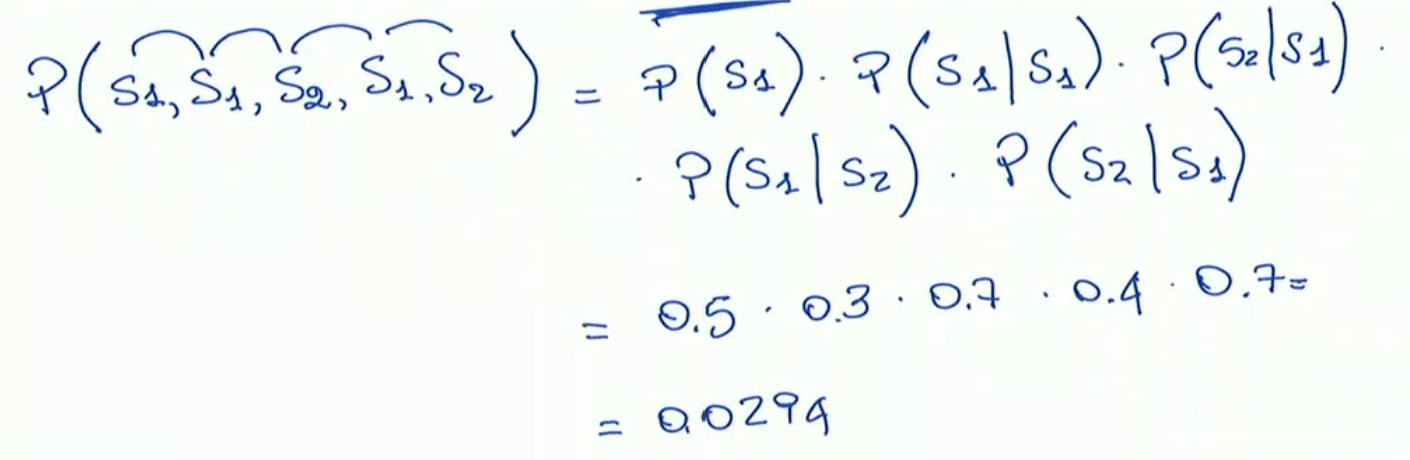 P(S1, S1, S2, S1, S2) = P(S1) · P(S1|S1) · P(S2|S1) ·
· P(S1|S2) · P(S2|S1)
= 0.5 · 0.3 · 0.7 · 0.4 · 0.7 =
= 0.0294